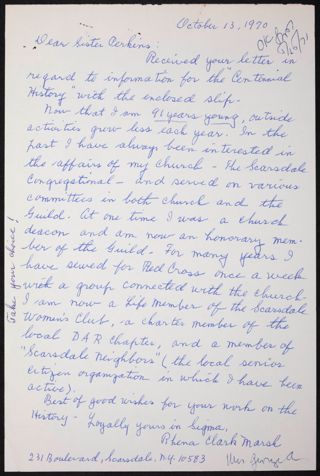 October 13, 1970
OK
Dear Sister Perkins:
Received your letter in
regard to information for the "Centennial
History" with the enclosed slip.
Now that I am 91 years young, outside
activities grow less each year. In the
past I have always been interested in
the affairs of my Church - the Scarsdale
Congregational - and served on various
committees in both church and the
Guild. At one time I was a church
deacon and am now an honorary mem-
ber of the Guild. For many years I
have sewed for Red Cross once a week
with a group connected with the church.
I am now a Life Member of the Scarsdale
Women's Club, a charter member of the
local DAR Chapter, and a member of
"Scarsdale Neighbors" (the local senior
citizen organization in which I have been
active).
Best of good wishes for your work on the
History - Loyally yours in Sigma,
Rhena Clark Marsh
231 Boulevard, Scarsdale, N.Y. 10583 Mrs George A
Take your choice!